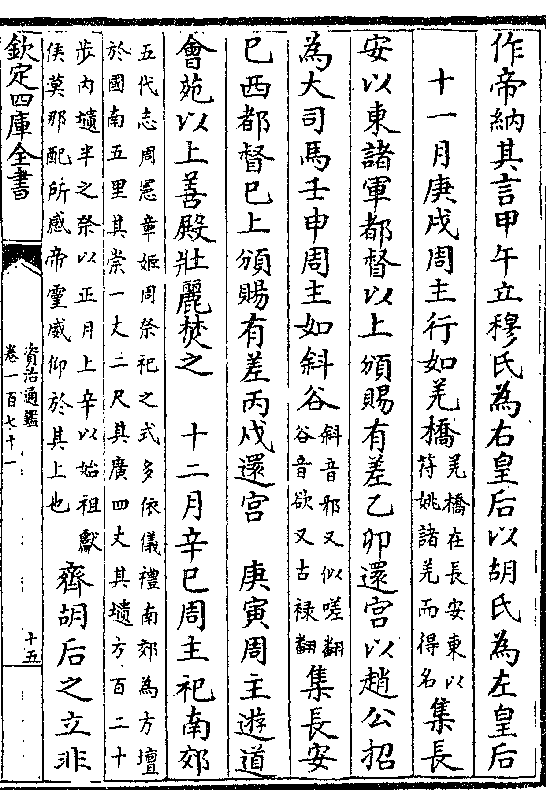 作帝納其言甲午立穆氏為右皇后以胡氏為左皇后
十一月庚戌周主行如羌橋羌橋在長安東以符姚諸羌而得名集長
安以東諸軍都督以上頒賜有差乙卯還宮以趙公招
為大司馬壬申周主如斜谷斜音邪又似嗟翻谷音欲又古禄翻集長安
已西都督已上頒賜有差丙戌還宮 庚寅周主遊道
會苑以上善殿壯麗焚之 十二月辛巳周主祀南郊
五代志周憲章姬周祭祀之式多依儀禮南郊為方壇
於國南五里其崇一丈二尺其廣四丈其壝方百二十
步内壝半之祭以正月上辛以始祖獻
侯莫那配所感帝靈威仰於其上也 齊胡后之立非
欽定四庫全書
資治通鑑
卷一百七十一
十五